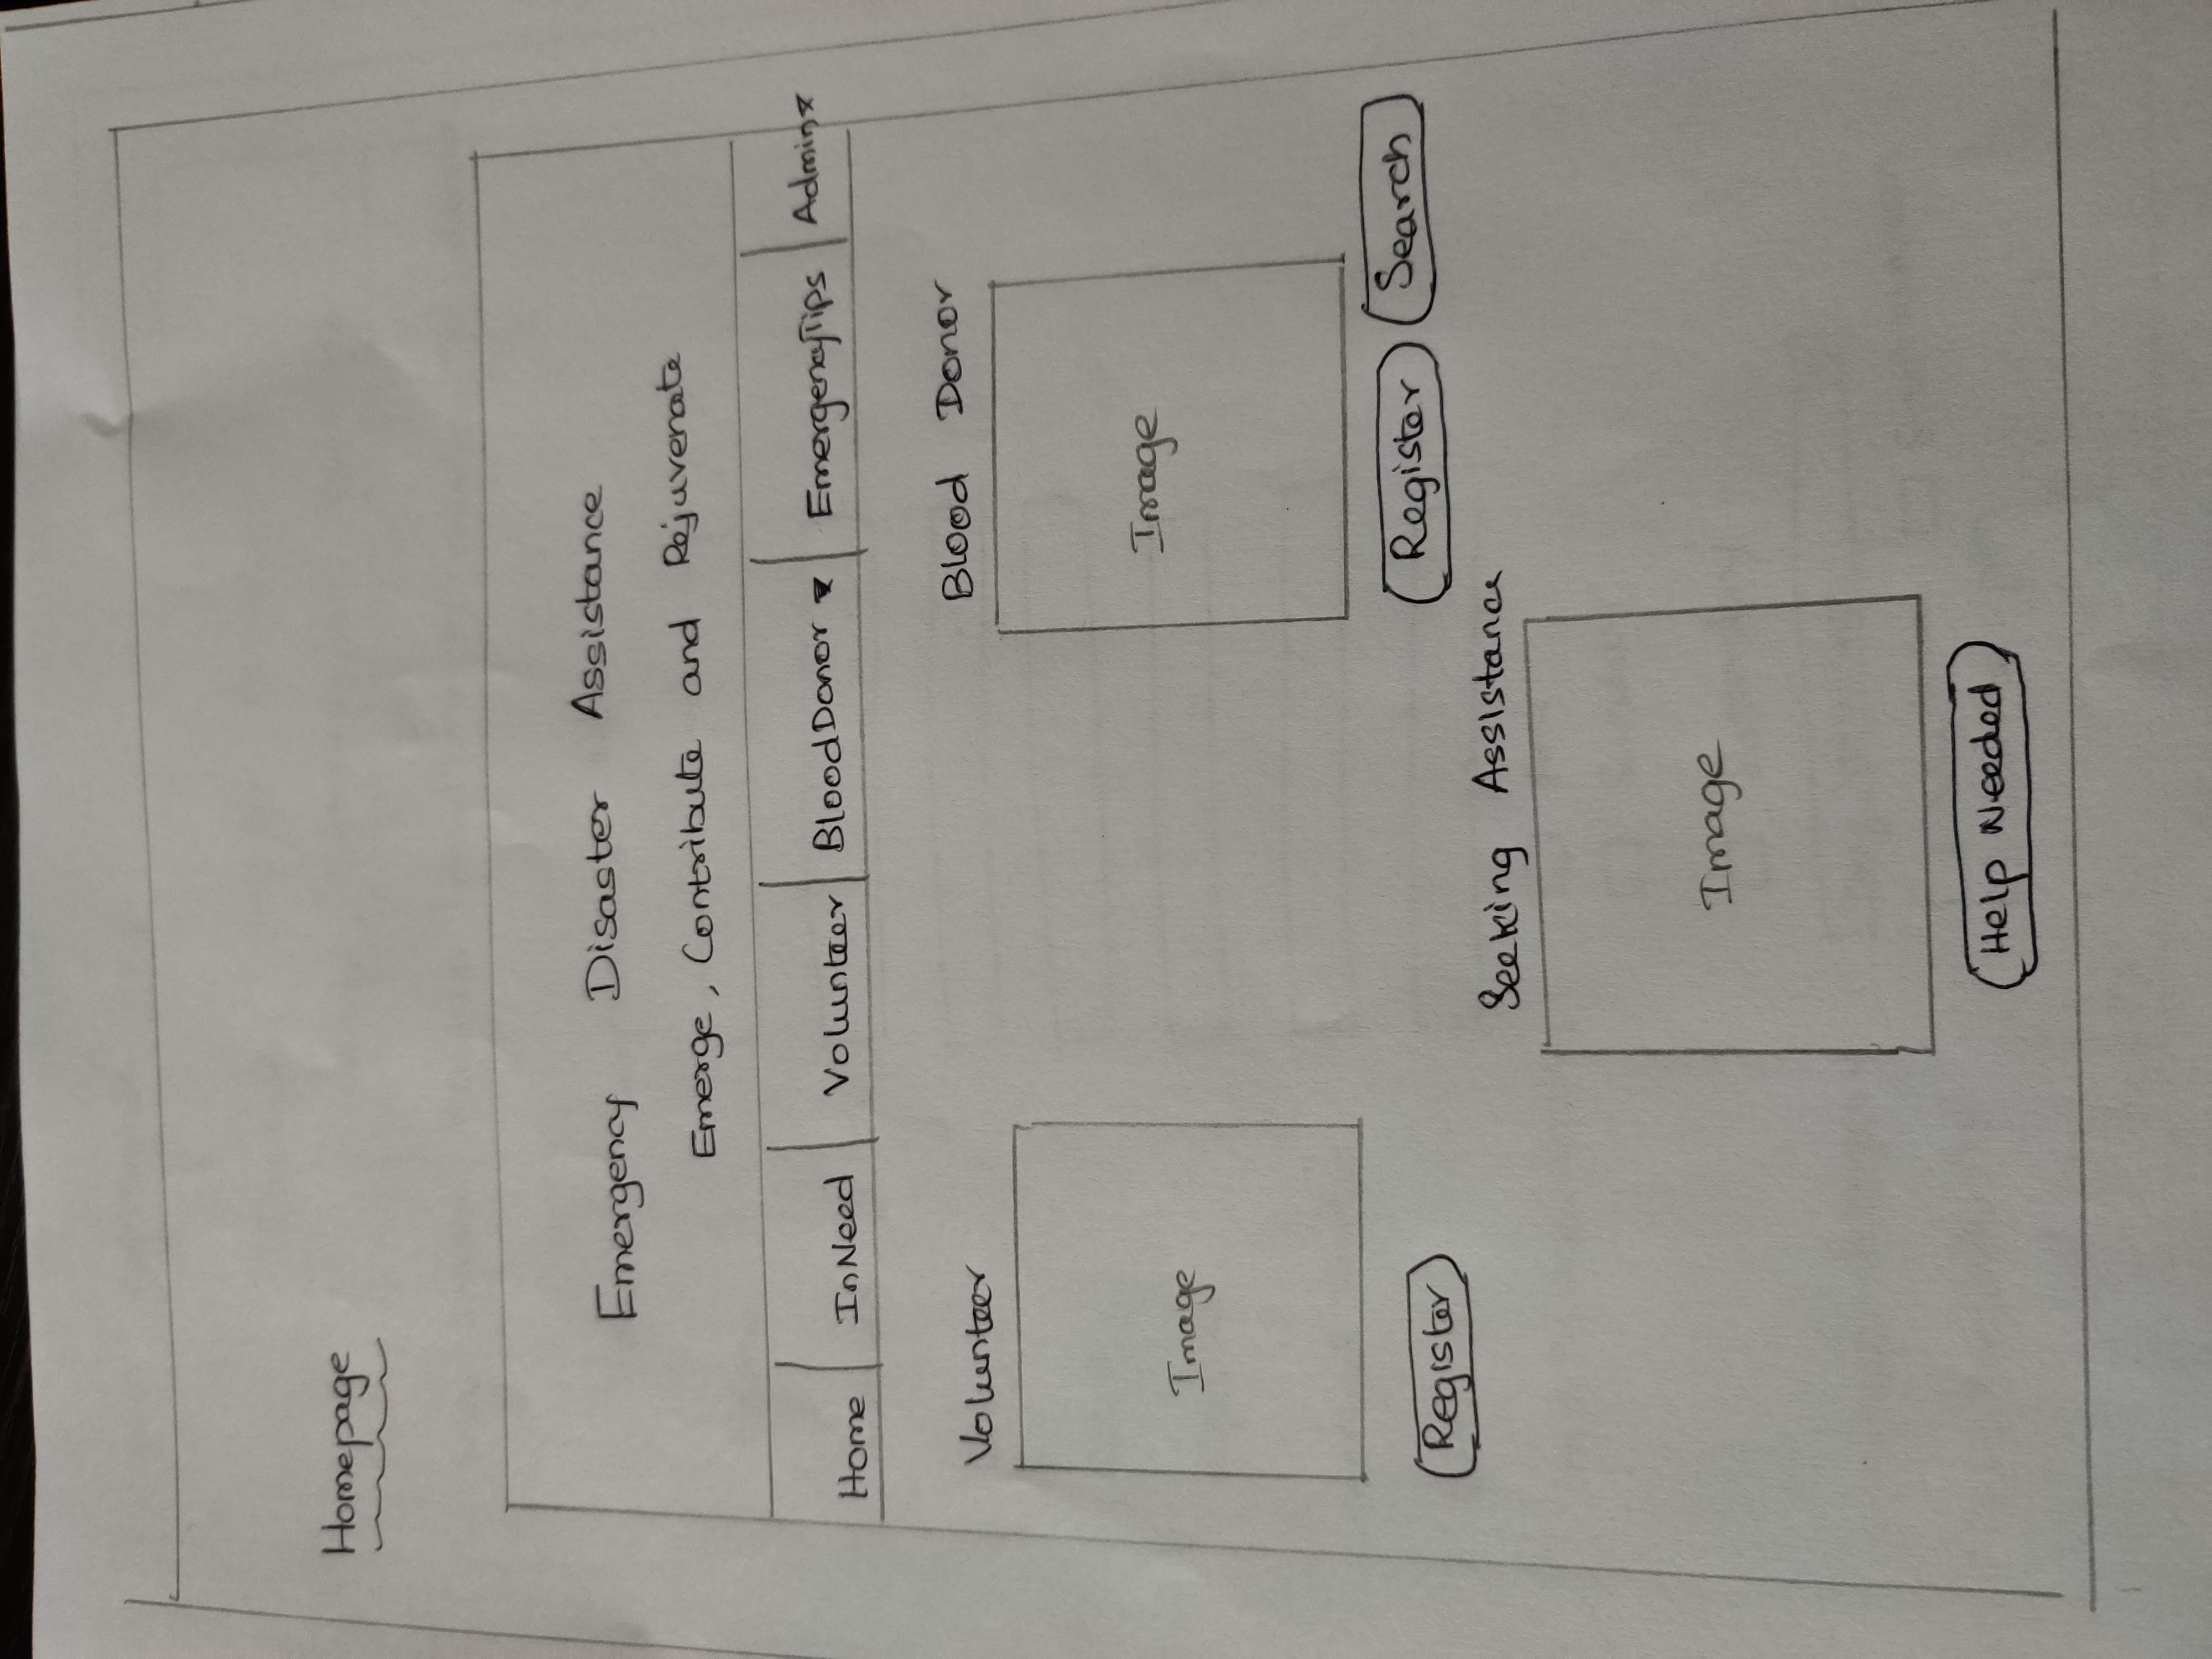 Homepage
Emergency Disaster Assistance
Emerge, Contribute and Rejuvenate
Home InNeed Volunteer BloodDonor EmergencyTips Admin
Volunteer Blood Donor
Image Image
Register Register Search
Seeking Assistance
Image
Help Needed